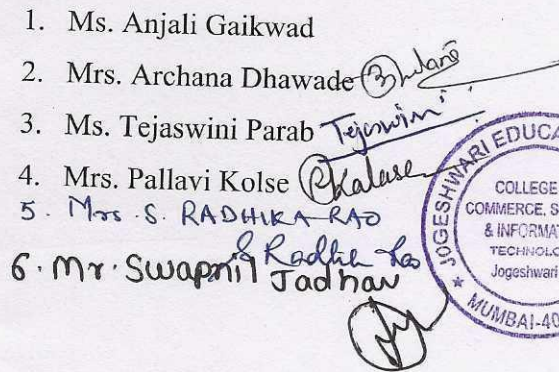 1. Ms. Anjali Gaikwad
2. Mrs. Archana Dhawade
3. Ms. Tejaswini Parab Tejaswini
4. Mrs. Pallavi Kolse PKalase
5. Mrs. S. RADHIKA RAO
S Radhika Rao
6. Mr. Swapnil Jadhav
JOGESHWARI EDUCA
COLLEGE
COMMERCE, S
& INFORMAT
TECHNOLO
Jogeshwari
MUMBAI-40